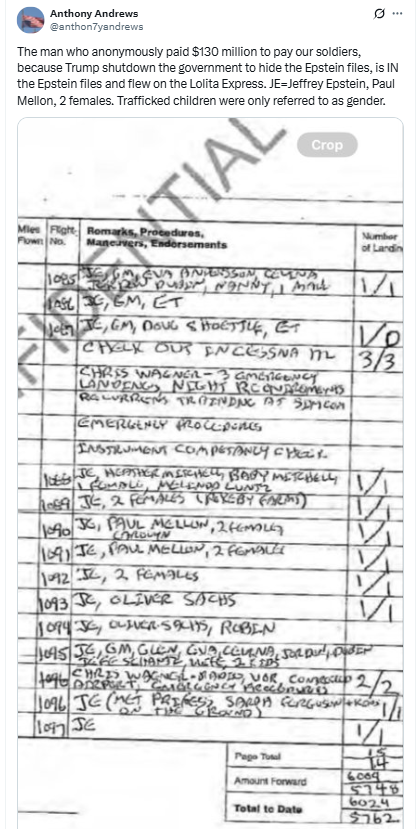 Anthony Andrews
@anthon7yandrews
The man who anonymously paid $130 million to pay our soldiers,
because Trump shutdown the government to hide the Epstein files, is IN
the Epstein files and flew on the Lolita Express. JE=Jeffrey Epstein, Paul
Mellon, 2 females. Trafficked children were only referred to as gender.
Crop
Miles Flown Flight No. Remarks, Procedures, Maneuvers, Endorsements Number of Landin
1085 JE, GM, EVA ANDERSSON, CELINA
DUBIN, NANNY, 1 MALE 1/1
1086 JE, GM, ET
1087 JE, GM, DOUG SHOETTLE, ET 1/0
CHECK OUT IN CESSNA 3/3
CHRIS WAGNER - 3 EMERGENCY
LANDINGS, NIGHT REQUIREMENTS
RECURRENT TRAINING AT SIMCOM
EMERGENCY PROCEDURES
INSTRUMENT COMPETANCY CHECK
1088 JE, HEATHER MITCHELL, BABY MITCHELL
1 FEMALE, MELINDA LUNTZ 1/1
1089 JE, 2 FEMALES 1/1
1090 JE, PAUL MELLON, 2 FEMALES
CAROLYN 1/1
1091 JE, PAUL MELLON, 2 FEMALES 1/1
1092 JE, 2 FEMALES 1/1
1093 JE, OLIVER SACHS 1/1
1094 JE, OLIVER SACHS, ROBIN
1095 JE, GM, GLEN, EVA, CELINA, JORDAN, DUBIN
2 KIDS
CHRIS WAGNER - RADIO, VOR, 2/2
AIRPORT, EMERGENCY PROCEDURES
1096 JE (MET PRINCESS SARAH FERGUSON + KIDS 1/1
ON THE GROUND)
1097 JE 1/1
Page Total 15
14
Amount Forward 6009
5748
Total to Date 6024
5762